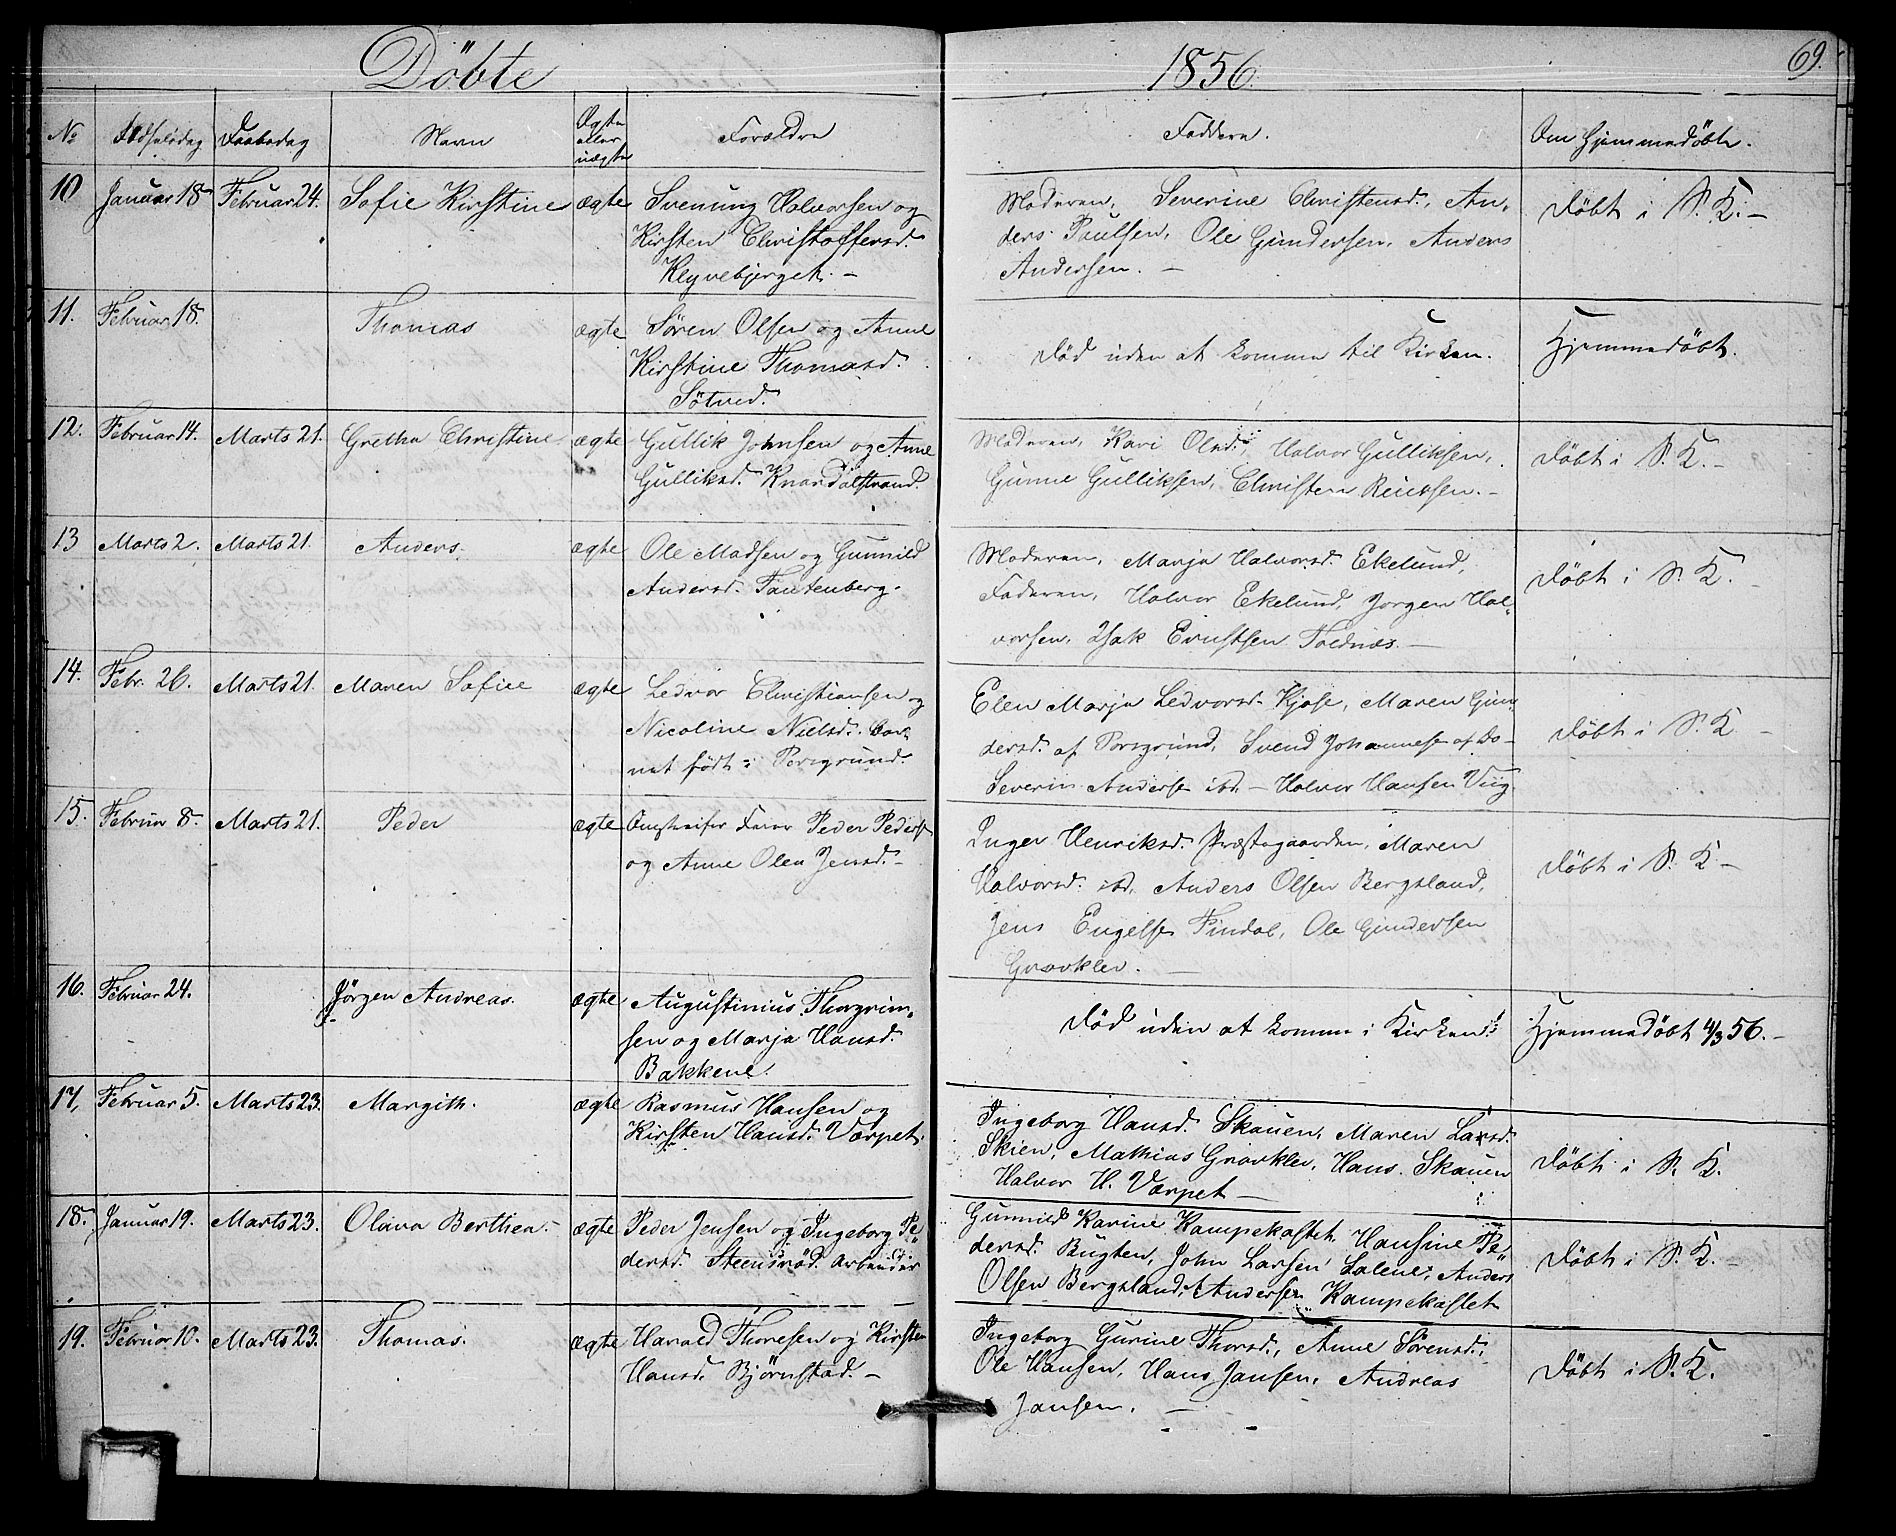 Döbte 1856. 69.
No Fødselsdag Daabsdag Navn Ægte eller uægte Forældre Faddere. Om Hjemmedöbte.
10 Januar 18 Februar 24. Sofie Kirstine ægte Svenung Halvorsen og
Kirsten Christoffersd.
Kleyvebjerget. –
Moderen, Severine Christensd., An-
ders Paulsen, Ole Gundersen, Anders
Andersen. –
Döbt i S. K. –
11. Februar 18. Thomas ægte Sören Olsen og Anne
Kirstine Thomasd.
Sötved.
Död uden at komme til Kirken. Hjemmedöbt.
12. Februar 14. Marts 21. Grethe Christine ægte Gullik Johnsen og Anne
Gulliksd. Knardalstrand.
Moderen, Kari Olsd., Halvor Gulliksen,
Gunne Gulliksen, Christen
Döbt i S. K. –
13 Marts 2. Marts 21. Anders. ægte Ole Madsen og Gunnild
Andersd. Tantenberg.
Moderen, Marja Halvorsd. Ekelund,
Faderen, Halvor Ekelund, Jørgen Hal-
vorsen, Isak Evertsen
Döbt i S. K. –
14. Febr. 26. Marts 21. Maren Sofie ægte Ledvor Christiansen og
Nicoline Nielsd. Bar-
net födt i Porsgrund.
Elen Marja Ledvorsd. Kjøse, Maren Gun-
dersd. af Porsgrund, Svend Johannesen af Do –
Severin Anderse ibd. – Halvor Hansen Viig
Döbt i S. K –
15. Februar 8. Marts 21. Peder ægte Omstreifer Peder Peders
og Anne Olea Jensd. –
Inger Henriksd. Præstegaarden, Maren
Halvorsd. ibd, Anders Olsen Bergsland,
Jens Engelse Findal, Ole Gundersen
Gravklev. –
Döbt i S. K –
16. Februar 24. Jörgen Andreas. ægte Augustinius Thorgrim-
sen og Marja Hansd.
Bakkene.
Död uden at komme i Kirken. Hjemmedöbt 4/3 56. –
17, Februar 5. Marts 23. Margith. ægte Rasmus Hansen og
Kirsten Hansd. Værpet.
Ingeborg Hansd. Skauen, Maren Larsd.
Skien, Mathias Gravklev, Hans Skauen
Halvor H. Værpet –
Döbt i S. K.
18. Januar 19. Marts 23. Olava Berthea. – ægte Peder Jensen og Ingeborg Pe-
dersd. Steensröd. Arbeider
Gunnild Karine Kampekastet. Hansine Pe-
dersd. Bugten, John Larsen Salene, Anders
Olsen Bergsland, Andersen Kampekastet
Döbt i S. K. –
19. Februar 10. Marts 23. Thomas. ægte Harald Thoresen og Kirsten
Hansd. Björnstad. –
Ingeborg Gurine Thorsd., Anne Sörensd.,
Ole Hansen, Hans Jansen, Andreas
Jansen. –
Döbt i S. K.